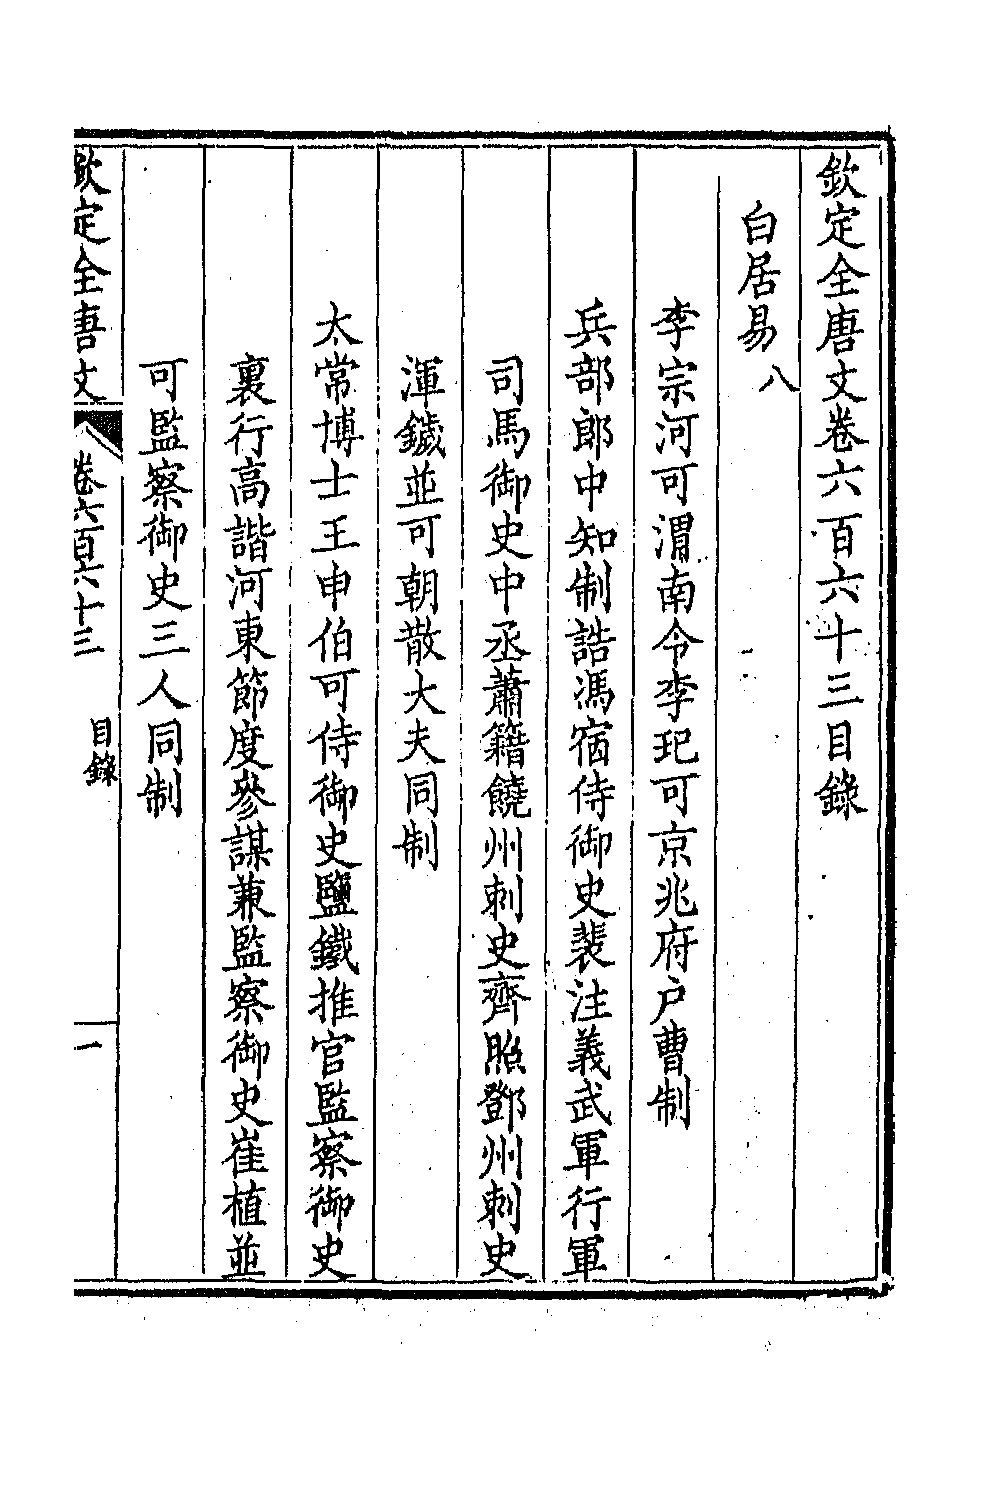 欽定全唐文卷六百六十三目錄
白居易八
李宗河可渭南令李玘可京兆府戶曹制
兵部郎中知制誥馮宿侍御史裴注義武軍行軍
司馬御史中丞蕭籍饒州刺史齊照鄧州刺史
渾鐬並可朝散大夫同制
太常博士王申伯可侍御史鹽鐵推官監察御史
裏行高諧河東節度參謀兼監察御史崔植並
可監察御史三人同制
欽定全唐文
卷六百六十三
目錄
一